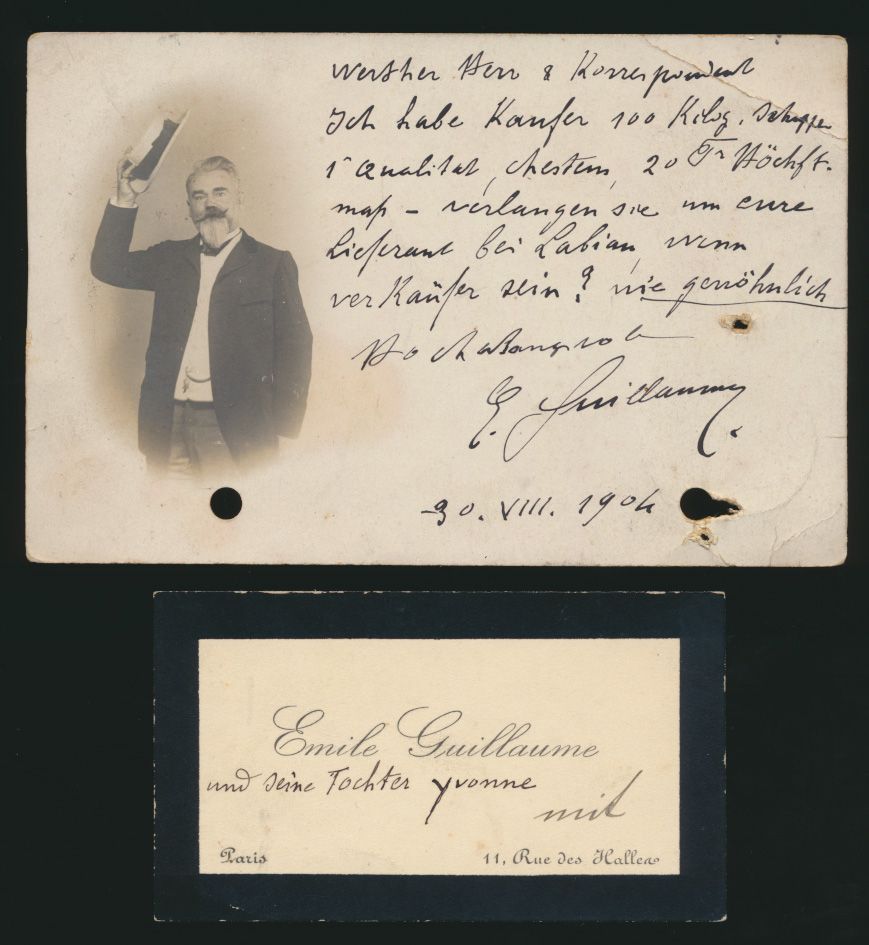 Werther Herr & Korrespondent
Ich habe Kaufer 100 Kilog. Schuppen
1ª Qualität, chestem, 20 Fr Höchst-
maß – verlangen sie um eure
Lieferant bei Labiau, wenn
verKaüfer sein? wie gewöhnlich
E. Guillaume.
30. VIII. 1904
Emile Guillaume
und seine Tochter Yvonne
mit
Paris
11, Rue des Halles